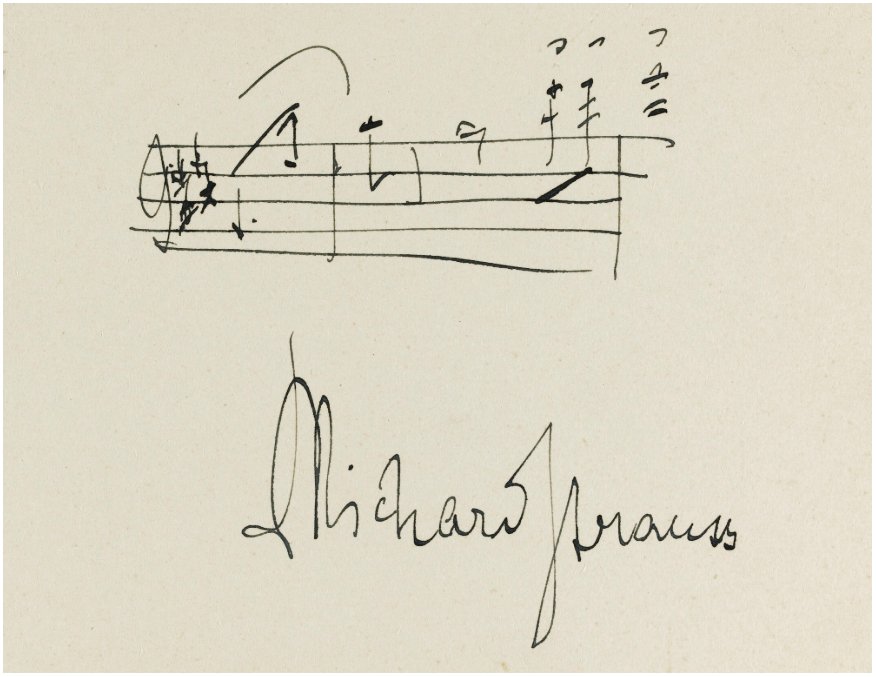 Richard Strauss